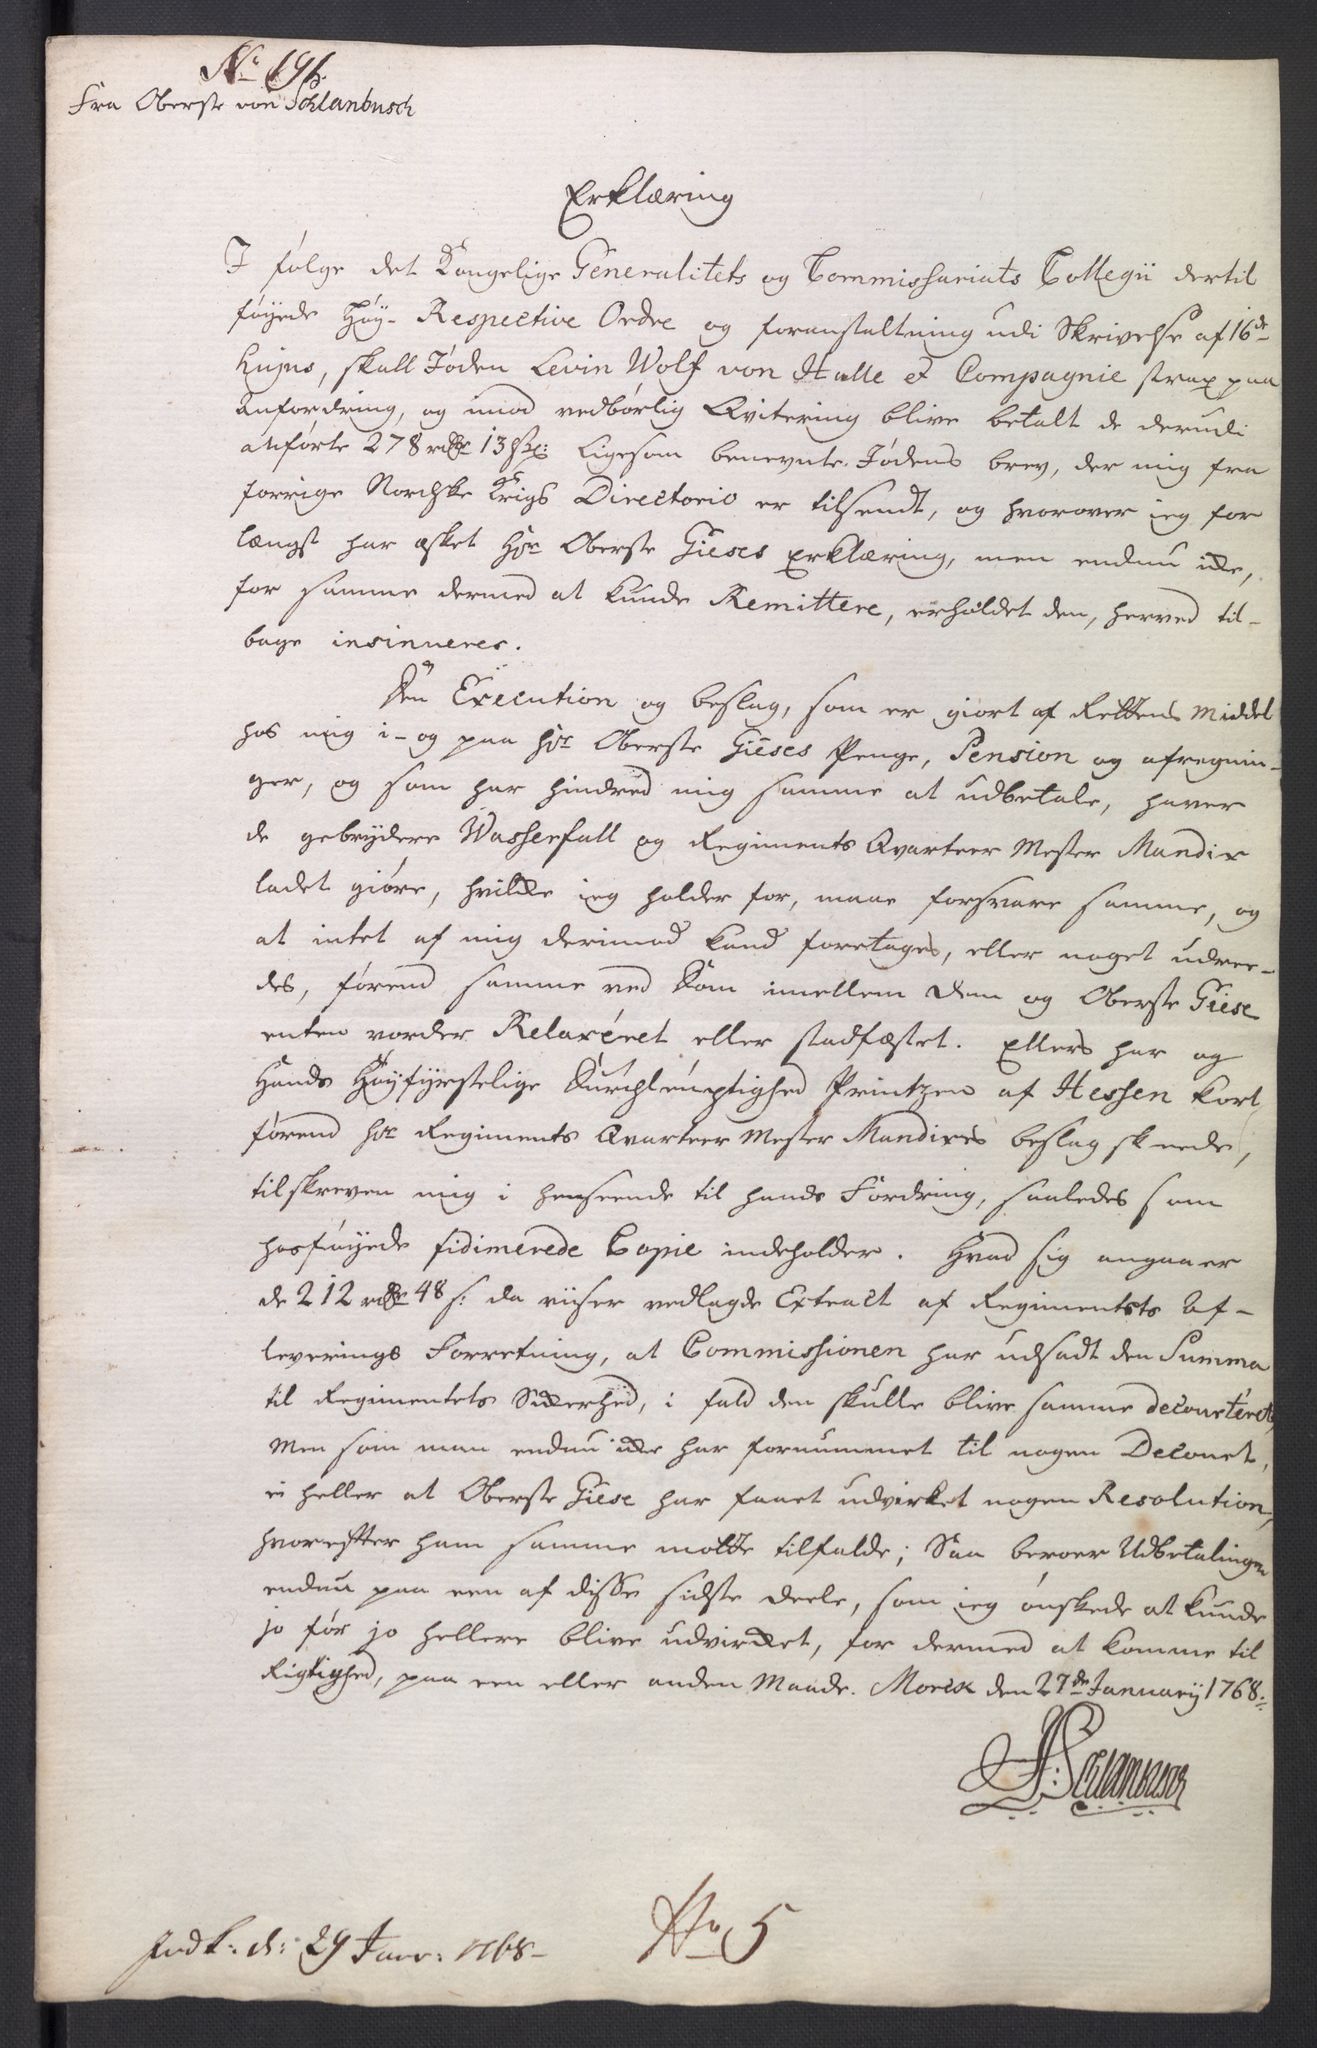 No 191.
Fra Oberste von Schlanbusch
Erklæring
I følge det Kongelige Generalitets og Commissariats Collegii dertil
føyede Høy-Respective Ordre og foranstaltning udi Skrivelse af 16de
hujus, skall Jøden Levin Wolf von Halle et Compagnie strax paa
Anfordring, og imod vedbørlig Qvitering blive betalt de derudi
anførte 278 rdlr 13 s: Ligesom benevnte Jødens brev, der mig fra
forrige Nordske Krigs Directorio er tilsendt, og hvorover ieg for
længst har æsket Hr Oberste Gieses Erklæring, men endnu icke,
for samme dermed at kunde Remittere, erholdet den, herved til-
bage insinueres.
Den Execution og beslag, som er giort af Rettens Middel
hos mig i- og paa Hr Oberste Gieses Penge, Pension og afregnin-
ger, og som har hindred mig samme at udbetale, haver
de gebrydere Wasserfall og Regiments Qvarteer Mester Mandix
ladet giøre, hvilcke ieg holder for, maae forsvare samme, og
at intet af mig derimod kand foretages, eller noget udree-
des, førend samme ved Dom imellem dem og Oberste Giese
enten vorder Relaxeret eller stadfæstet. Ellers har og
Hands Høyfyrstelige Durchleuchtighed Printzen af Hessen kort
førend Hr Regiments Qvarteer Mester Mandixes beslag skeede,
tilskreven mig i henseende til hands Fordring, saaledes som
hosføyede fidimerede Copie indeholder. Hvad sig angaaer
de 212 rdlr 48 s: da viiser vedlagde Extract af Regimentets Af-
leverings Forretning, at Commissionen har udsadt den Summa
til Regimentets Sickerhed, i fald den skulle blive samme decourteret,
Men som man endnu icke har fornummet til nogen Decourt,
ei heller at Oberste Giese har faaet udvirket nogen Resolution,
hvorefter ham samme motte tilfalde; Saa beroer Udbetalingen
endnu paa een af disse sidste deele, som ieg ønskede at kunde
jo før jo hellere blive udvircket, for dermed at komme til
Rigtighed, paa een eller anden Maade. Morck den 27de Januarij 1768.
Schlanbusch
Indk: d: 29 Janr: 1768-
No 5